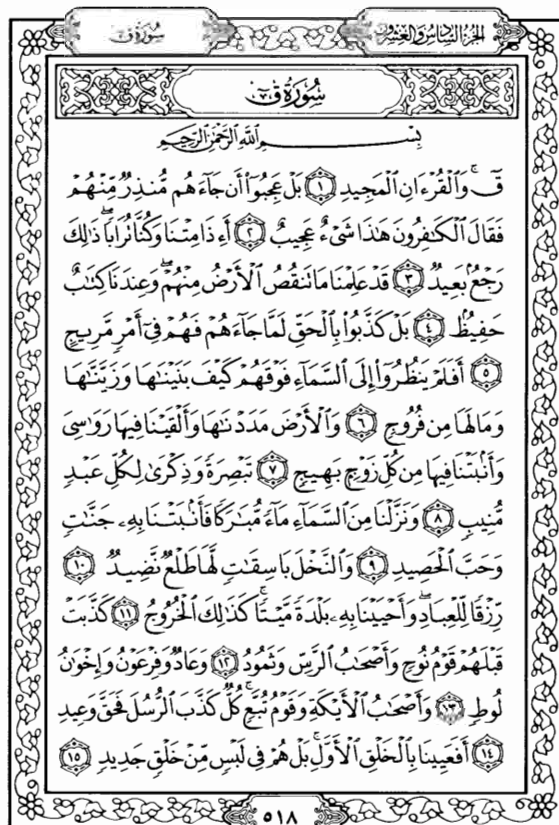 سُورَةُ قٓ
الجزء السادس والعشرون
سُورَةُ قٓ
بِسْمِ اللَّهِ الرَّحْمَٰنِ الرَّحِيمِ
قٓ ۚ وَالْقُرْءَانِ الْمَجِيدِ ١ بَلْ عَجِبُوٓا۟ أَن جَآءَهُم مُّنذِرٌ مِّنْهُمْ
فَقَالَ الْكَٰفِرُونَ هَٰذَا شَىْءٌ عَجِيبٌ ٢ أَءِذَا مِتْنَا وَكُنَّا تُرَابًا ۖ ذَٰلِكَ
رَجْعٌۢ بَعِيدٌ ٣ قَدْ عَلِمْنَا مَا تَنقُصُ الْأَرْضُ مِنْهُمْ ۖ وَعِندَنَا كِتَٰبٌ
حَفِيظٌۢ ٤ بَلْ كَذَّبُوا۟ بِالْحَقِّ لَمَّا جَآءَهُمْ فَهُمْ فِىٓ أَمْرٍ مَّرِيجٍ
٥ أَفَلَمْ يَنظُرُوٓا۟ إِلَى السَّمَآءِ فَوْقَهُمْ كَيْفَ بَنَيْنَٰهَا وَزَيَّنَّٰهَا
وَمَا لَهَا مِن فُرُوجٍ ٦ وَالْأَرْضَ مَدَدْنَٰهَا وَأَلْقَيْنَا فِيهَا رَوَٰسِىَ
وَأَنۢبَتْنَا فِيهَا مِن كُلِّ زَوْجٍۭ بَهِيجٍ ٧ تَبْصِرَةً وَذِكْرَىٰ لِكُلِّ عَبْدٍ
مُّنِيبٍ ٨ وَنَزَّلْنَا مِنَ السَّمَآءِ مَآءً مُّبَٰرَكًا فَأَنۢبَتْنَا بِهِۦ جَنَّٰتٍ
وَحَبَّ الْحَصِيدِ ٩ وَالنَّخْلَ بَاسِقَٰتٍ لَّهَا طَلْعٌ نَّضِيدٌ ١٠
رِّزْقًا لِّلْعِبَادِ ۖ وَأَحْيَيْنَا بِهِۦ بَلْدَةً مَّيْتًا ۚ كَذَٰلِكَ الْخُرُوجُ ١١ كَذَّبَتْ
قَبْلَهُمْ قَوْمُ نُوحٍ وَأَصْحَٰبُ الرَّسِّ وَثَمُودُ ١٢ وَعَادٌ وَفِرْعَوْنُ وَإِخْوَٰنُ
لُوطٍ ١٣ وَأَصْحَٰبُ الْأَيْكَةِ وَقَوْمُ تُبَّعٍ ۚ كُلٌّ كَذَّبَ الرُّسُلَ فَحَقَّ وَعِيدِ
١٤ أَفَعَيِينَا بِالْخَلْقِ الْأَوَّلِ ۚ بَلْ هُمْ فِى لَبْسٍ مِّنْ خَلْقٍ جَدِيدٍ ١٥
٥١٨